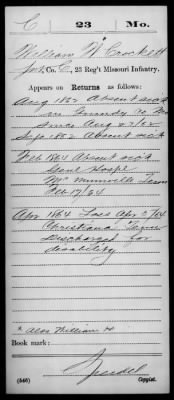 C 23 Mo.
William W Crockett
Pvt, Co. C, 23 Reg't Missouri Infantry.
Appears on Returns as follows:
Aug 1862 Absent sick
in Grundy Co Mo
since Aug 2/62
Sept 1862 Absent sick
Feb 1864 Absent sick
Genl Hospl
McMinnville Tenn
Feb 17/64
Apr 1864 Loss Apr 2/64
Christiana Tenn
Discharged for
disability
* Also William H
Book mark:
(546) Copyist.